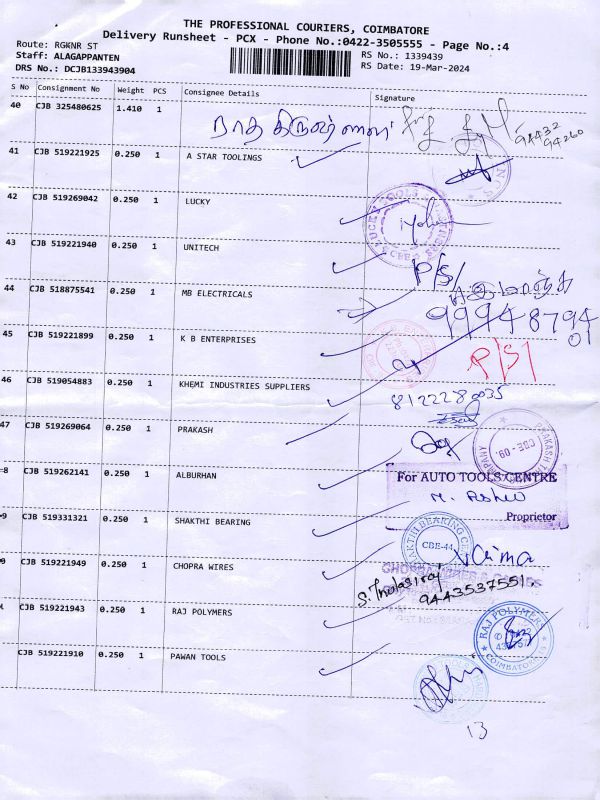 THE PROFESSIONAL COURIERS, COIMBATORE
Delivery Runsheet - PCX - Phone No.:0422-3505555 - Page No.:4
Route: RGKNR ST
Staff: ALAGAPPANTEN
DRS No.: DCJB133943904
RS No.: 1339439
RS Date: 19-Mar-2024
S No Consignment No Weight PCS Consignee Details Signature
40 CJB 325480625 1.410 1
94432
94260
41 CJB 519221925 0.250 1 A STAR TOOLINGS
42 CJB 519269042 0.250 1 LUCKY
43 CJB 519221940 0.250 1 UNITECH
P/S/
44 CJB 518875541 0.250 1 MB ELECTRICALS
99948794
01
45 CJB 519221899 0.250 1 K B ENTERPRISES
P/S/
46 CJB 519054883 0.250 1 KHEMI INDUSTRIES SUPPLIERS
8122280035
47 CJB 519269064 0.250 1 PRAKASH
CBE-60.
48 CJB 519262141 0.250 1 ALBURHAN
For AUTO TOOLS CENTRE
Proprietor
49 CJB 519331321 0.250 1 SHAKTHI BEARING
CBE-44
CJB 519221949 0.250 1 CHOPRA WIRES
S. Thulasiraj
9443537551
CJB 519221943 0.250 1 RAJ POLYMERS
RAJ POLYMERS
COIMBATORE
CJB 519221910 0.250 1 PAWAN TOOLS
13